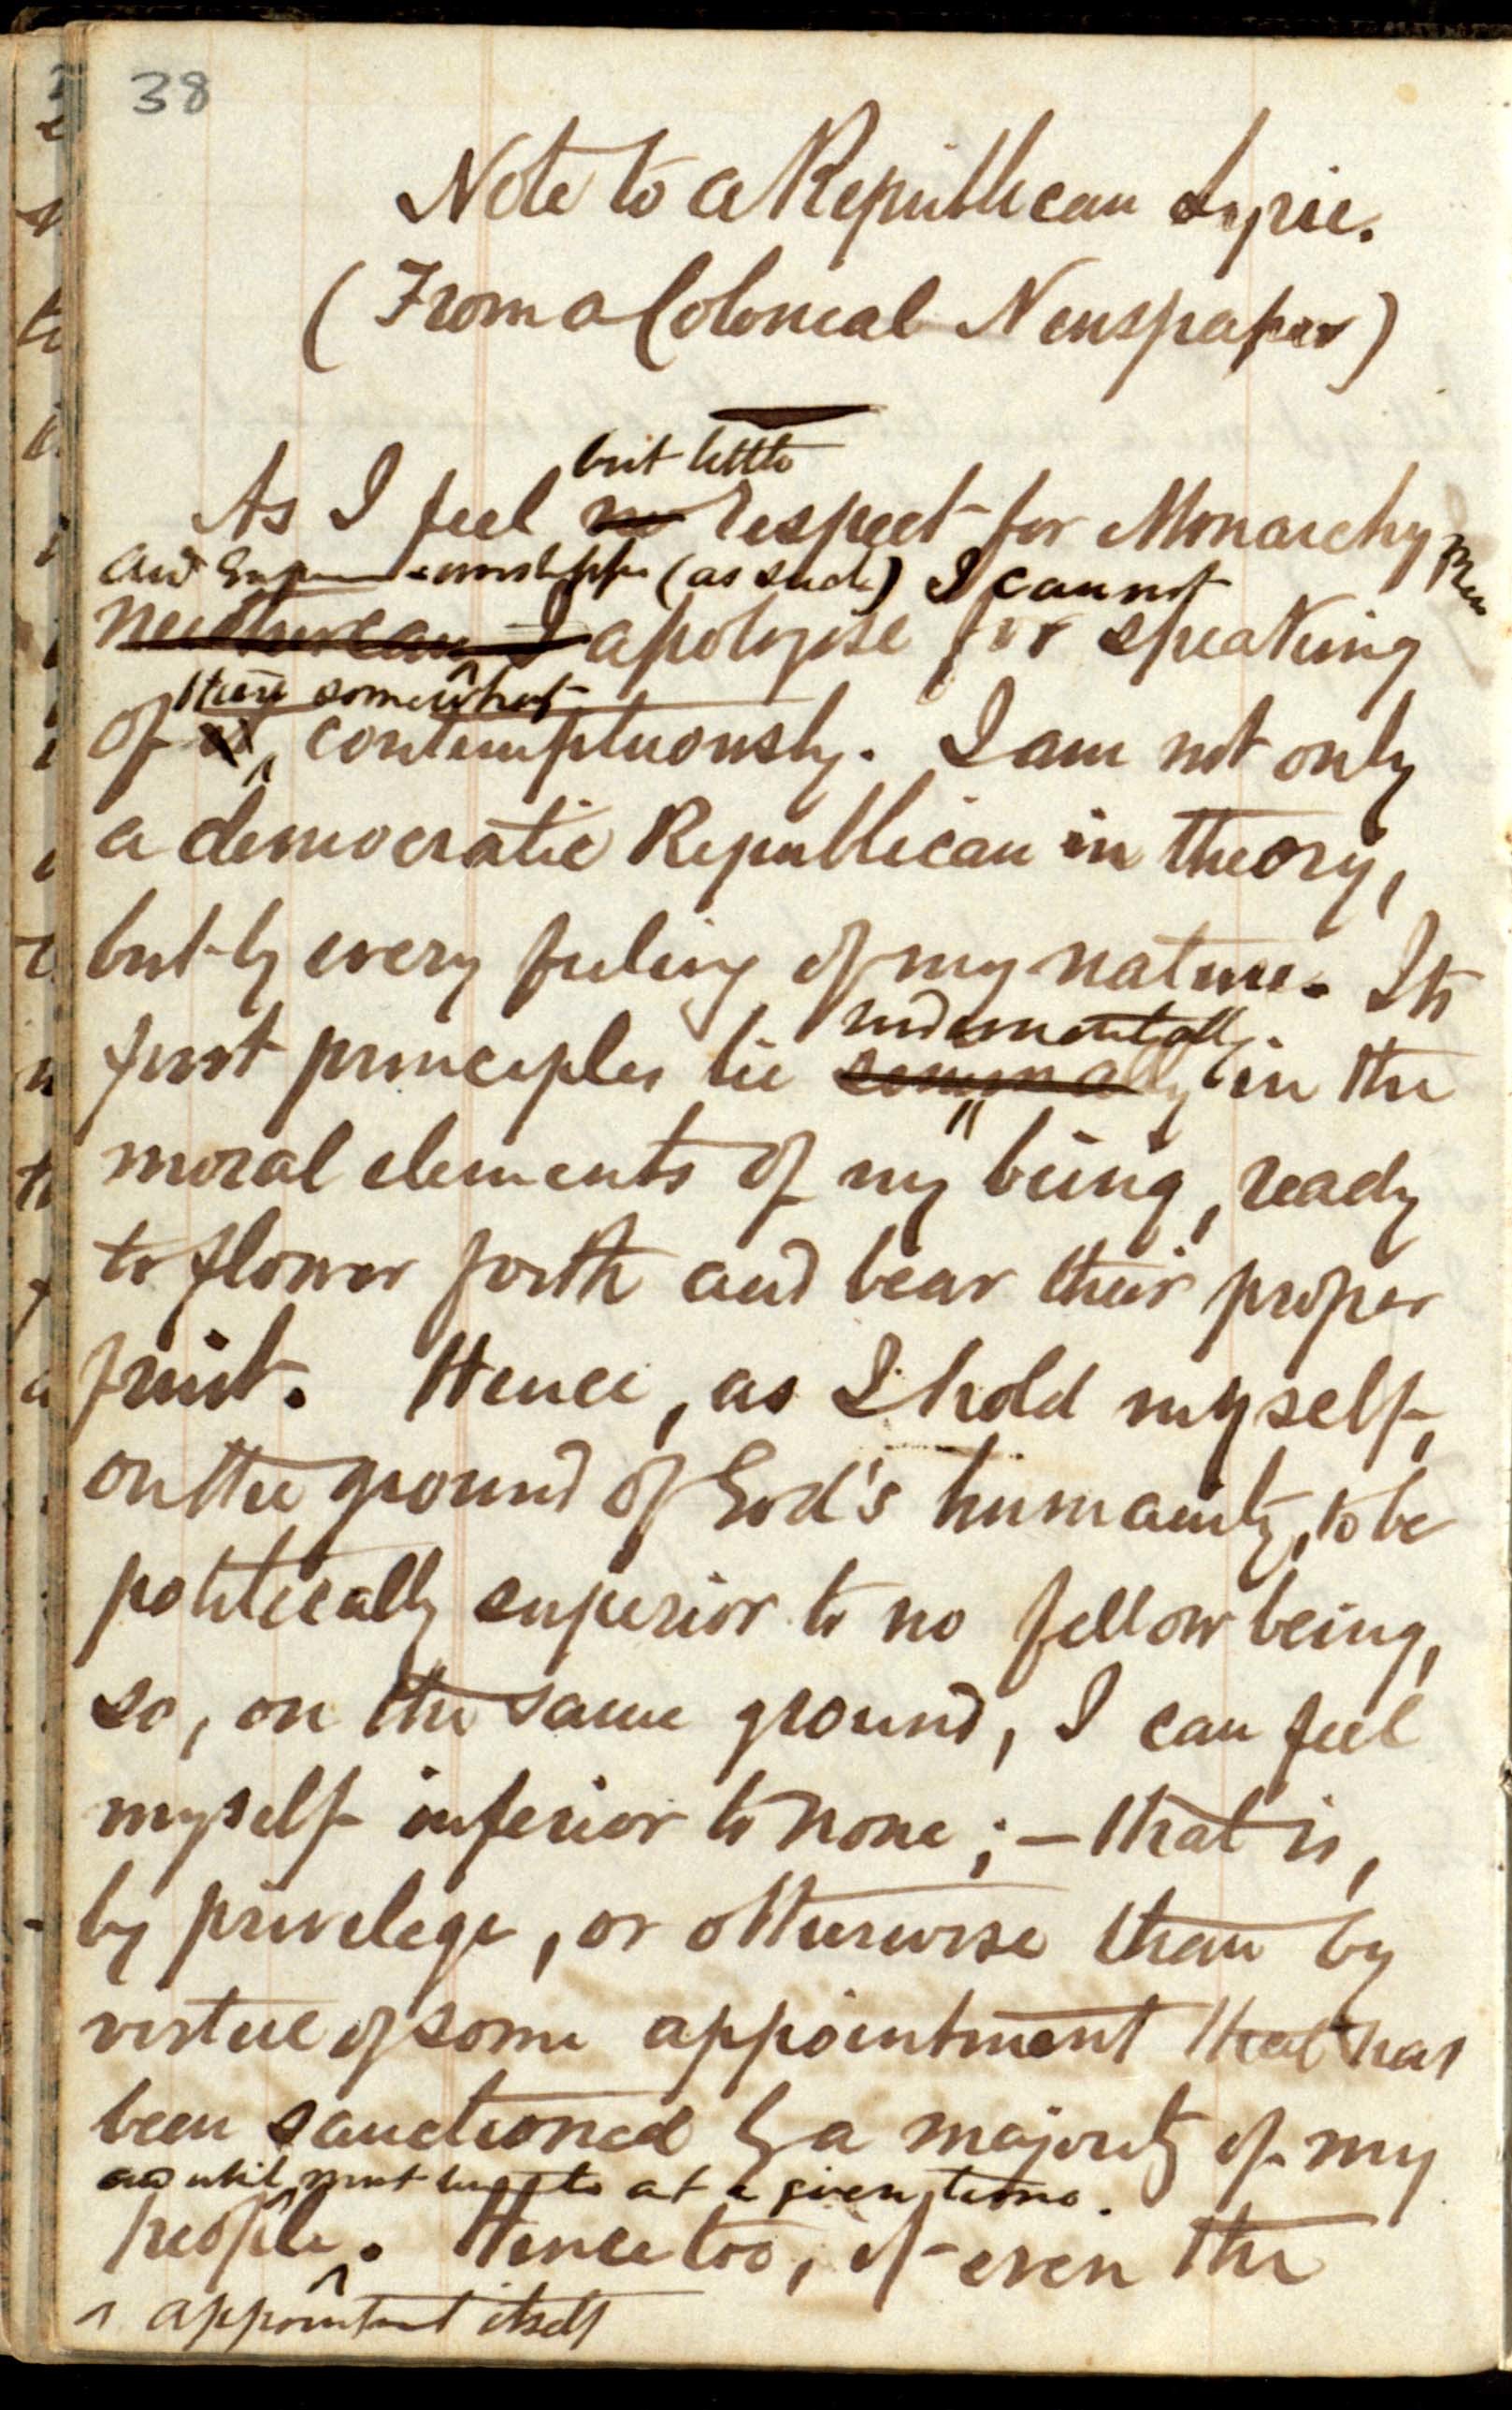 38
Note to a Republican Lyric.
(From a Colonial Newspaper)
but little
As I feel no respect for Monarchy
and worshipper (as such) I cannot
neither can I apologise for speaking
these somewhat
of it, contemptuously. I am not only
a democratic Republican in theory,
but by every feeling of my nature. Its
rudimentally
first principles lie in the
moral elements of my being, ready
to flower forth and bear their proper
fruit. Hence, as I hold myself,
on the ground of God's humanity, to be
politically superior to no fellow being,
so, on the same ground, I can feel
myself inferior to none; — that is,
by privilege, or otherwise than by
virtue of some appointment that has
been sanctioned by a majority of my
at a given time.
people. Hence too, if even the
appointment itself